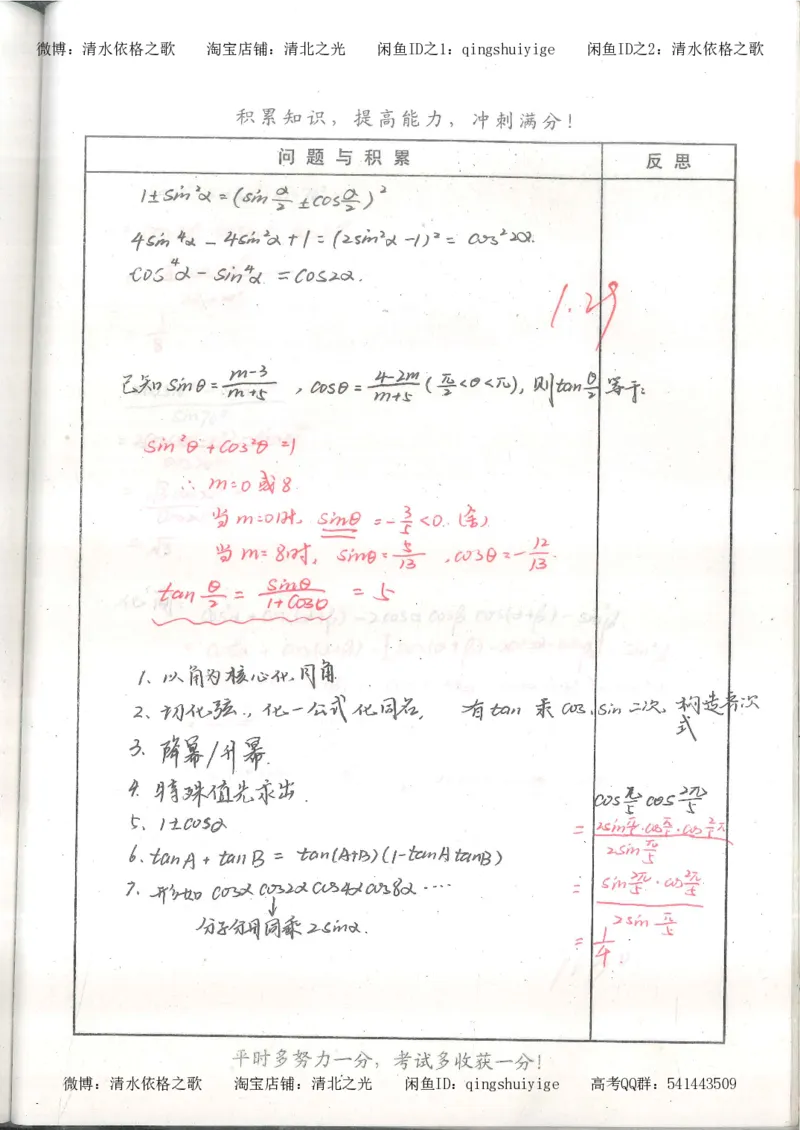 微博：清水依格之歌 淘宝店铺：清北之光 闲鱼ID之1：qingshuiyige 闲鱼ID之2：清水依格之歌
积累知识，提高能力，冲刺满分！
问题与积累 反思
1±sin²α=(sin α/2 ±cos α/2)²
4sin⁴α-4sin²α+1=(2sin²α-1)²=cos²2α.
cos⁴α-sin⁴α=cos2α.
1.29
已知sinθ=(m-3)/(m+5)，cosθ=(4-2m)/(m+5)(π/2<θ<π)，则tan θ/2 等于：
sin²θ+cos²θ=1
∴ m=0或8
当m=0时，sinθ=-3/5<0.（舍）
当m=8时，sinθ=5/13，cosθ=-12/13.
tan θ/2 = sinθ/(1+cosθ) = 5
1、以角为核心化同角
2、切化弦.，化一公式 化同名， 有tan 乘cos、sin二次，构造齐次式
3、降幂/升幂.
4、特殊值先求出.
5、1±cosα
6、tanA+tanB=tan(A+B)(1-tanAtanB)
7、形如 cosαcos2αcos4αcos8α····
↓
分子分母同乘2sinα.
cos π/5 cos 2π/5
= 2sin π/5·cos π/5·cos 2/5 π / 2sin π/5
= sin 2π/5·cos 2π/5 / 2sin π/5
= 1/4.
平时多努力一分，考试多收获一分！
微博：清水依格之歌 淘宝店铺：清北之光 闲鱼ID：qingshuiyige 高考QQ群：541443509